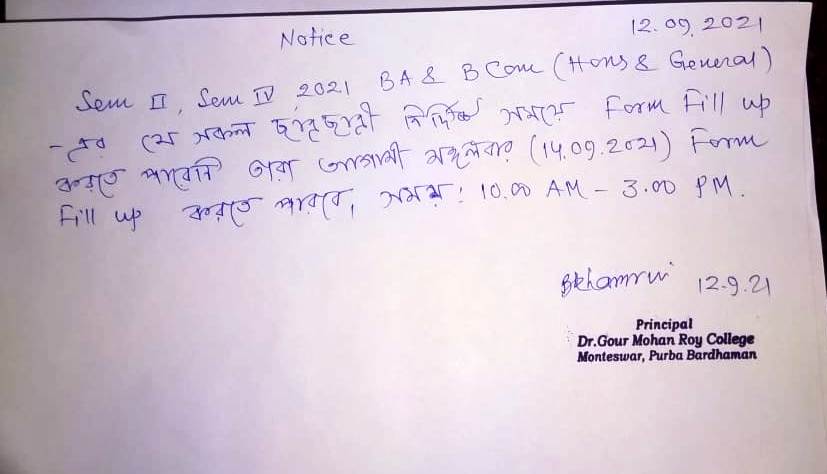 Notice
12.09.2021
Sem II, Sem IV 2021 BA & B Com (Hons & General)
-এর যে সকল ছাত্রছাত্রী নির্দিষ্ট সময়ে Form Fill up
করতে পারেনি তারা আগামী মঙ্গলবার (14.09.2021) Form
Fill up করতে পারবে, সময় : 10.00 AM - 3.00 PM.
Bkhamrui 12.9.21
Principal
Dr.Gour Mohan Roy College
Monteswar, Purba Bardhaman